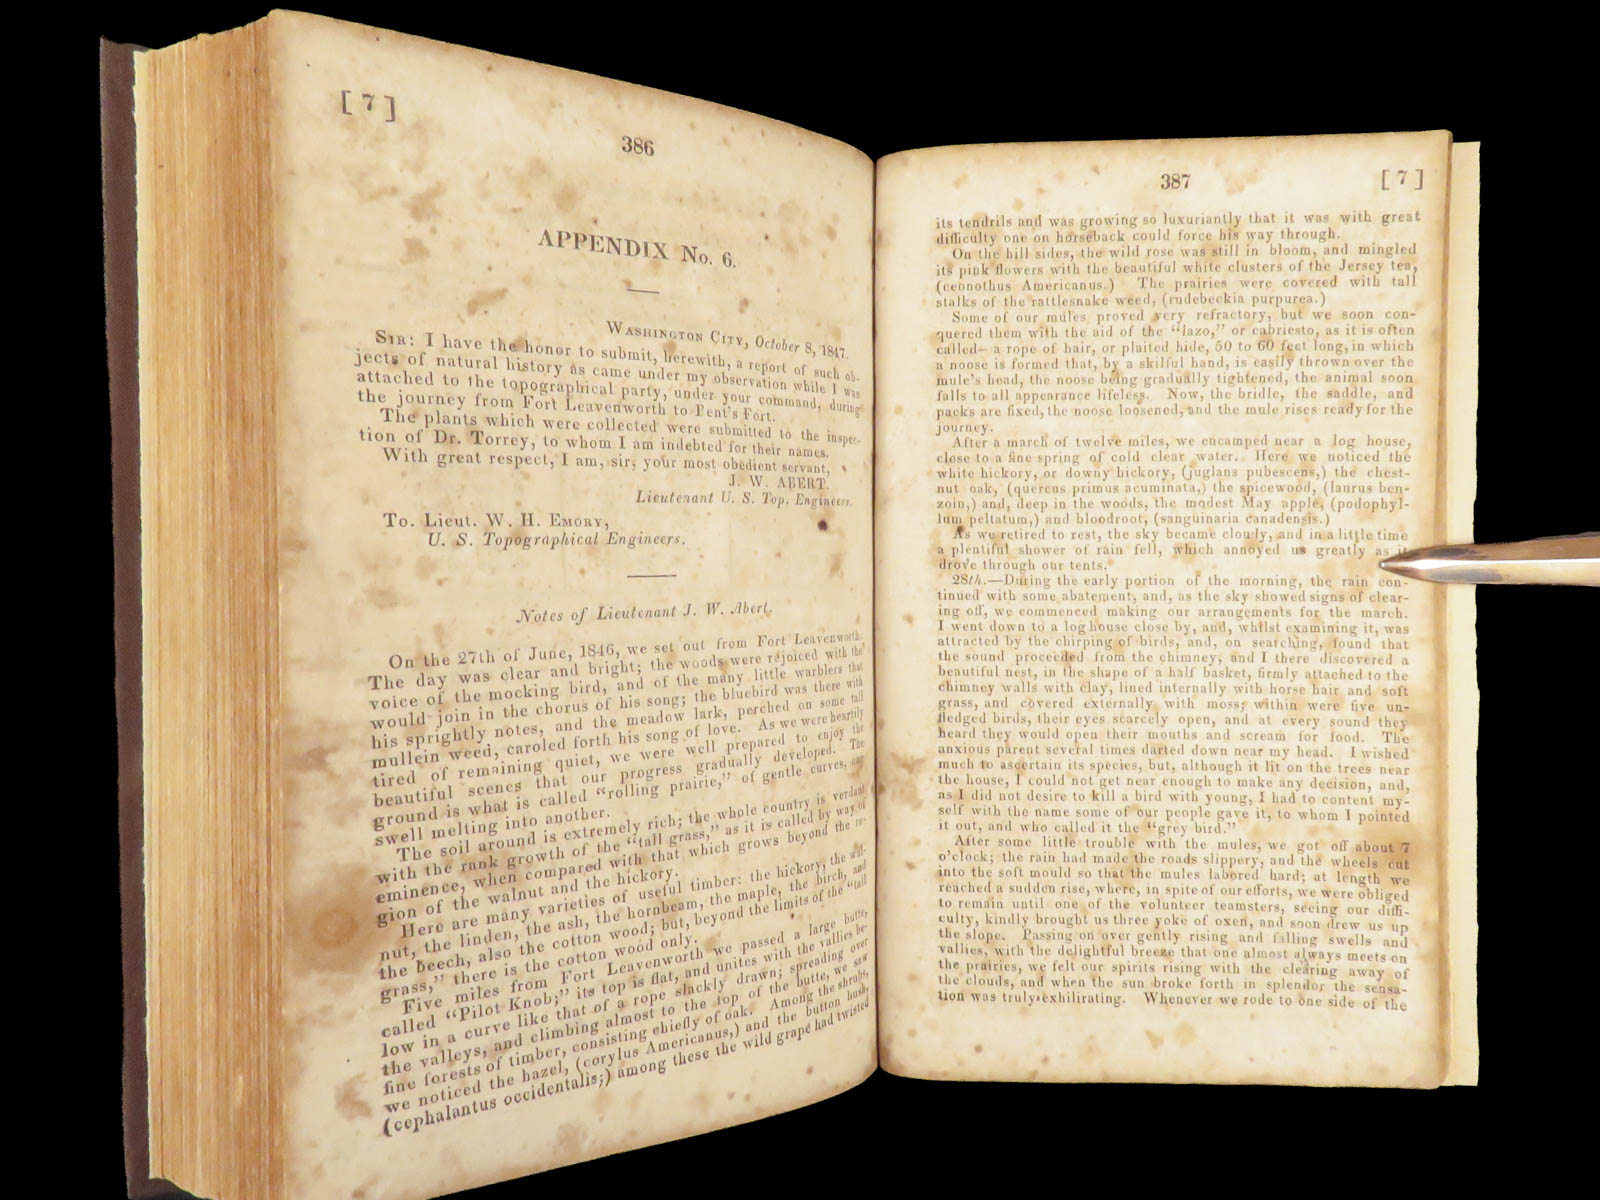 [ 7 ]
386
APPENDIX No. 6.
WASHINGTON CITY, October 8, 1847.
SIR: I have the honor to submit, herewith, a report of such ob-
jects of natural history as came under my observation while I was
attached to the topographical party, under your command, during
the journey from Fort Leavenworth to Bent's Fort.
The plants which were collected were submitted to the inspec-
tion of Dr. Torrey, to whom I am indebted for their names.
With great respect, I am, sir, your most obedient servant,
J. W. ABERT.
Lieutenant U. S. Top. Engineers.
To. Lieut. W. H. EMORY,
U. S. Topographical Engineers.
Notes of Lieutenant J. W. Abert.
On the 27th of June, 1846, we set out from Fort Leavenworth.
The day was clear and bright; the woods were rejoiced with the
voice of the mocking bird, and of the many little warblers that
would join in the chorus of his song; the bluebird was there with
his sprightly notes, and the meadow lark, perched on some tall
mullein weed, caroled forth his song of love. As we were heartily
tired of remaining quiet, we were well prepared to enjoy the
beautiful scenes that our progress gradually developed. The
ground is what is called "rolling prairie," of gentle curves, one
swell melting into another.
The soil around is extremely rich; the whole country is verdant
with the rank growth of the "tall grass," as it is called by way of
eminence, when compared with that which grows beyond the re-
gion of the walnut and the hickory.
Here are many varieties of useful timber: the hickory, the wal-
nut, the linden, the ash, the hornbeam, the maple, the birch, and
the beech, also the cotton wood; but, beyond the limits of the "tall
grass," there is the cotton wood only.
Five miles from Fort Leavenworth we passed a large butte,
called "Pilot Knob;" its top is flat, and unites with the vallies be-
low in a curve like that of a rope slackly drawn; spreading over
the valleys, and climbing almost to the top of the butte, we saw
fine forests of timber, consisting chiefly of oak. Among the shrubs,
we noticed the hazel, (corylus Americanus,) and the button bush,
(cephalantus occidentalis;) among these the wild grape had twisted
387
[ 7 ]
its tendrils and was growing so luxuriantly that it was with great
difficulty one on horseback could force his way through.
On the hill sides, the wild rose was still in bloom, and mingled
its pink flowers with the beautiful white clusters of the Jersey tea,
(ceonothus Americanus.) The prairies were covered with tall
stalks of the rattlesnake weed, (rudebeckia purpurea.)
Some of our mules proved very refractory, but we soon con-
quered them with the aid of the "lazo," or cabriesto, as it is often
called— a rope of hair, or plaited hide, 50 to 60 feet long, in which
a noose is formed that, by a skilful hand, is easily thrown over the
mule's head, the noose being gradually tightened, the animal soon
falls to all appearance lifeless. Now, the bridle, the saddle, and
packs are fixed, the noose loosened, and the mule rises ready for the
journey.
After a march of twelve miles, we encamped near a log house,
close to a fine spring of cold clear water. Here we noticed the
white hickory, or downy hickory, (juglans pubescens,) the chest-
nut oak, (quercus primus acuminata,) the spicewood, (laurus ben-
zoin,) and, deep in the woods, the modest May apple, (podophyl-
lum peltatum,) and bloodroot, (sanguinaria canadensis.)
As we retired to rest, the sky became cloudy, and in a little time
a plentiful shower of rain fell, which annoyed us greatly as it
drove through our tents.
28th.—During the early portion of the morning, the rain con-
tinued with some abatement, and, as the sky showed signs of clear-
ing off, we commenced making our arrangements for the march.
I went down to a log house close by, and, whilst examining it, was
attracted by the chirping of birds, and, on searching, found that
the sound proceeded from the chimney, and I there discovered a
beautiful nest, in the shape of a half basket, firmly attached to the
chimney walls with clay, lined internally with horse hair and soft
grass, and covered externally with moss; within were five un-
fledged birds, their eyes scarcely open, and at every sound they
heard they would open their mouths and scream for food. The
anxious parent several times darted down near my head. I wished
much to ascertain its species, but, although it lit on the trees near
the house, I could not get near enough to make any decision, and,
as I did not desire to kill a bird with young, I had to content my-
self with the name some of our people gave it, to whom I pointed
it out, and who called it the "grey bird."
After some little trouble with the mules, we got off about 7
o'clock; the rain had made the roads slippery, and the wheels cut
into the soft mould so that the mules labored hard; at length we
reached a sudden rise, where, in spite of our efforts, we were obliged
to remain until one of the volunteer teamsters, seeing our diffi-
culty, kindly brought us three yoke of oxen, and soon drew us up
the slope. Passing on over gently rising and falling swells and
vallies, with the delightful breeze that one almost always meets on
the prairies, we felt our spirits rising with the clearing away of
the clouds, and when the sun broke forth in splendor the sensa-
tion was truly exhilirating. Whenever we rode to one side of the